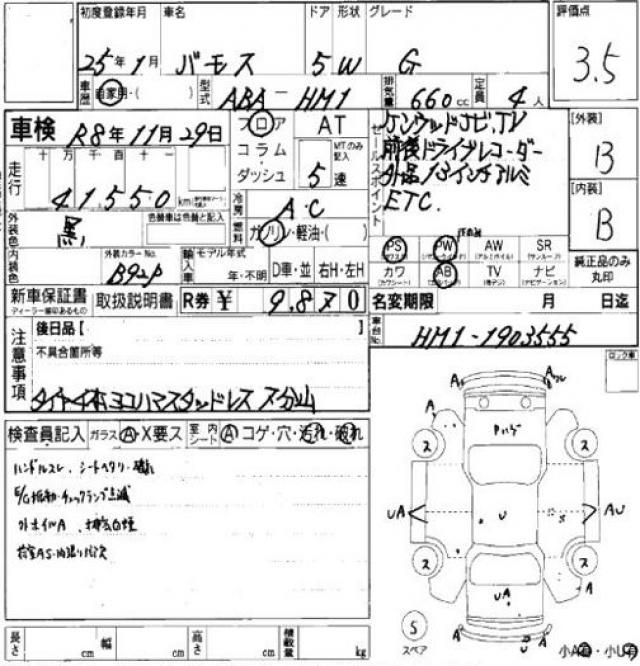 初度登録年月 車名 ドア 形状 グレード 評価点
25年1月 バモス 5 W G 3.5
車歴 自家用・( ) 型式 ABA-HM1 排気量 660cc 定員 4人
車検 R8年11月29日 フロア AT
コラム・ MTのみ記入
ダッシュ 5速
セールスポイント
ケンウッドナビ、TV
前後ドライブレコーダー
外品13インチアルミ
ETC.
[外装]
B
[内装]
B
走行 十万千百十一
41550 km
冷房 A・C
外装色 黒 色替車は色替と記入
燃料 ガソリン・軽油・( )
内装色 外装カラーNo. B92P
輸入車 モデル年式 年・不明 D車・並 右H・左H
PS PW AW SR
カワ AB TV ナビ
純正品のみ丸印
新車保証書 取扱説明書 R券 ¥ 9,870
ディーラー捺印あるもの
名変期限 月 日迄
注意事項
後日品【 】
不具合箇所等
タイヤ4本ヨコハマスタッドレス 7分山
車台No. HM1-1903555
ロック車
検査員記入 ガラス A・X要ス 室内シート A コゲ・穴・汚れ・破れ
ハンドルスレ、シートヘタリ・破れ
E/G振動・チェックランプ点滅
外ホイルA、排気白煙
荷室AS・内張り欠
A A
A A
Pハゲ
ス ス
UA U AU
ス ス
UA A
S
スペア
A U A
小A有・小U有
長さ cm 幅 cm 高さ cm 積載量 kg